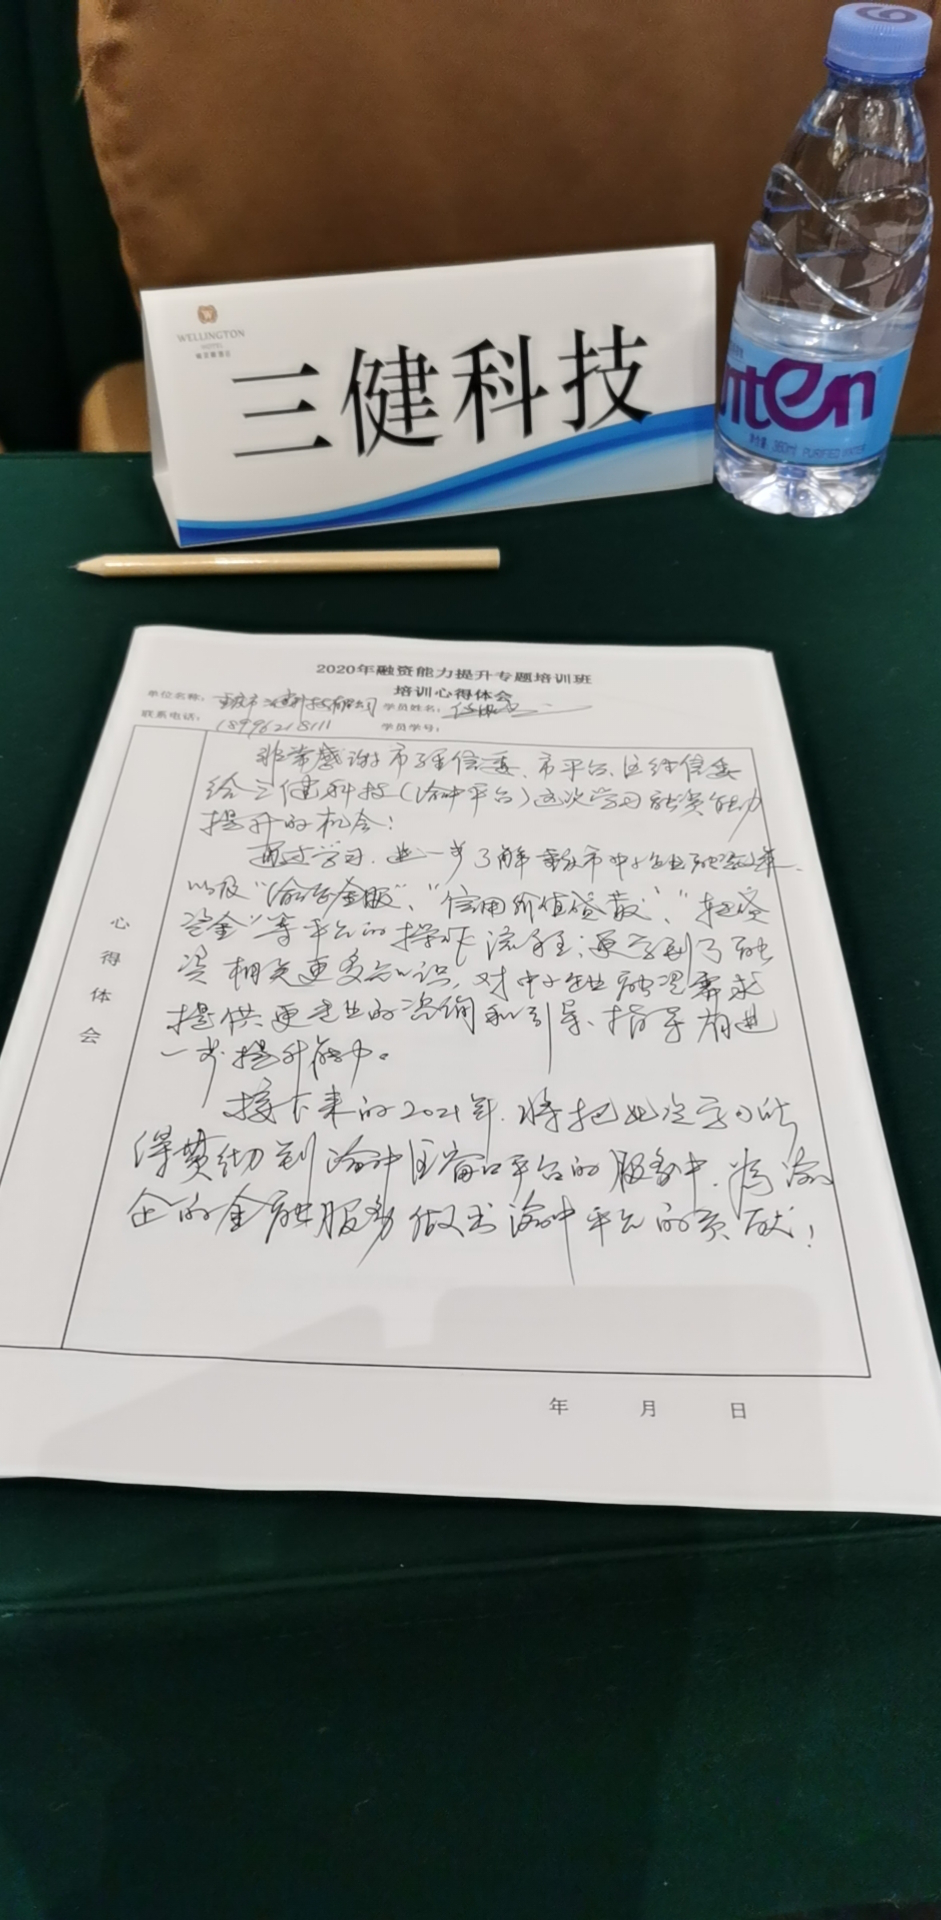 WELLINGTON
HOTEL
三健科技
nten
360ml PURIFIED WATER
2020年融资能力提升专题培训班
培训心得体会
单位名称: 重庆市三健科技有限公司 学员姓名:
联系电话: 18996218111 学员学号:
心得体会
非常感谢市经信委、市平台、区经信委
给三健科技(渝中平台)这次学习融资能力
提升的机会!
通过学习,进一步了解重庆市中小企业融资政策、
以及“渝企金服”、“信用价值贷款”、“转贷
资金”等平台的操作流程;更学到了融
资相关更多知识,对中小企业融资需求
提供更专业的咨询和引导、指导有进
一步提升能力。
接下来的2021年,将把此次学习所
得贯彻到渝中区窗口平台的服务中,为渝
企的金融服务做出渝中平台的贡献!
年 月 日